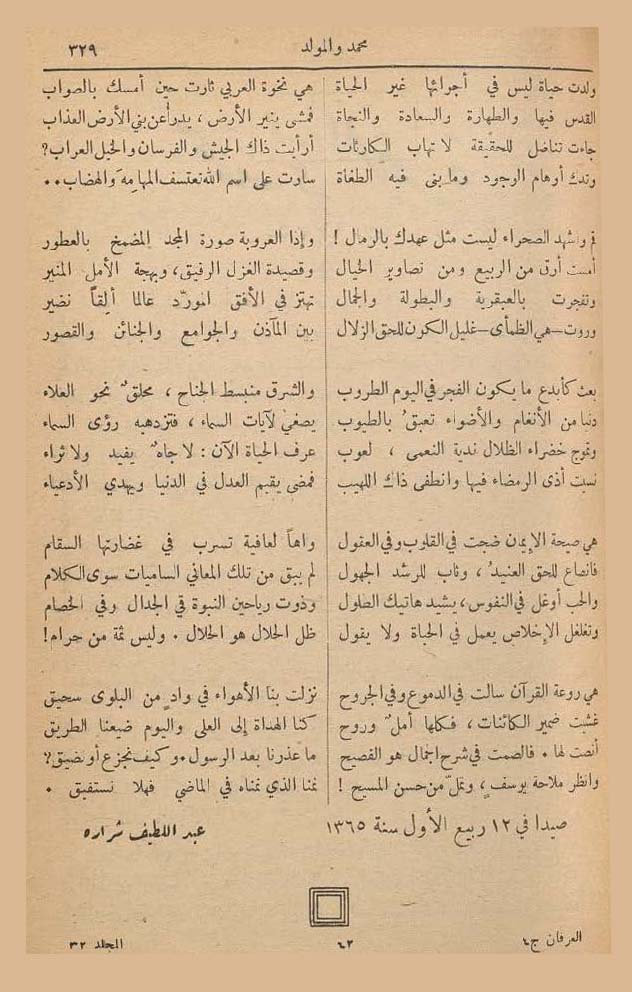 محمد والمولد
٣٢٩
ولدت حياة ليس في أجوائها غير الحياة
القدس فيها والطهارة والسعادة والنجاة
جاءت تناضل للحقيقة لا تهاب الكارثات
وتدك أوهام الوجود وما بنى فيه الطغاة
هي نخوة العربي ثارت حين أمسك بالصواب
فمشى ينير الأرض ، يدرأ عن بني الأرض العذاب
أرأيت ذاك الجيش والفرسان والخيل العراب؟
سارت على اسم الله تعتسف المهامه والهضاب ٠٠
قم واشهد الصحراء ليست مثل عهدك بالرمال !
أمست أرق من الربيع ومن تصاوير الخيال
وتفجرت بالعبقرية والبطولة والجمال
وروت – هي الظمأى – غليل الكون للحق الزلال
وإذا العروبة صورة المجد المضمخ بالعطور
وقصيدة الغزل الرفيق، وبهجة الأمل المنير
تهتز في الأفق المورّد عالما ألِقاً نضير
بين المآذن والجوامع والجنائن والقصور
بعث كأبدع ما يكون الفجر في اليوم الطروب
دنيا من الأنغام والأضواء تعبق بالطيوب
وتموج خضراء الظلال ندية النعمى ، لعوب
نسيت أذى الرمضاء فيها وانطفى ذاك اللهيب
والشرق منبسط الجناح ، محلقٌ نحو العلاء
يصغي لآيات السماء ، فتزدهيه رؤى السماء
عرف الحياة الآن : لا جاهٌ يفيد ولا ثراء
فمضى يقيم العدل في الدنيا ويهدي الأدعياء
هي صيحة الإيمان ضجت في القلوب وفي العقول
فانصاع للحق العنيدُ ، وثاب للرشد الجهول
والحب أوغل في النفوس، يشيد هاتيك الطلول
وتغلغل الإخلاص يعمل في الحياة ولا يقول
واهاً لعافية تسرب في غضارتها السقام
لم يبق من تلك المعاني الساميات سوى الكلام
وذوت رياحين النبوة في الجدال وفي الخصام
ظل الحلال هو الحلال ٠ وليس ثمة من حرام!
هي روعة القرآن سالت في الدموع وفي الجروح
غشيت ضمير الكائنات ، فكلها أملٌ وروح
أنصت لها ٠ فالصمت في شرح الجمال هو الفصيح
وانظر ملاحة يوسفٍ ، وتملّ من حسن المسيح !
نزلت بنا الأهواء في وادٍ من البلوى سحيق
كنا الهداة إلى العلى واليوم ضيعنا الطريق
ما عذرنا بعد الرسول ٠ وكيف نجزع أو نضيق؟
نمنا الذي نمناه في الماضي فهلا نستفيق ٠
صيدا في ١٢ ربيع الأول سنة ١٣٦٥
عبد اللطيف شراره
العرفان ج٤
٤٢
المجلد ٣٢